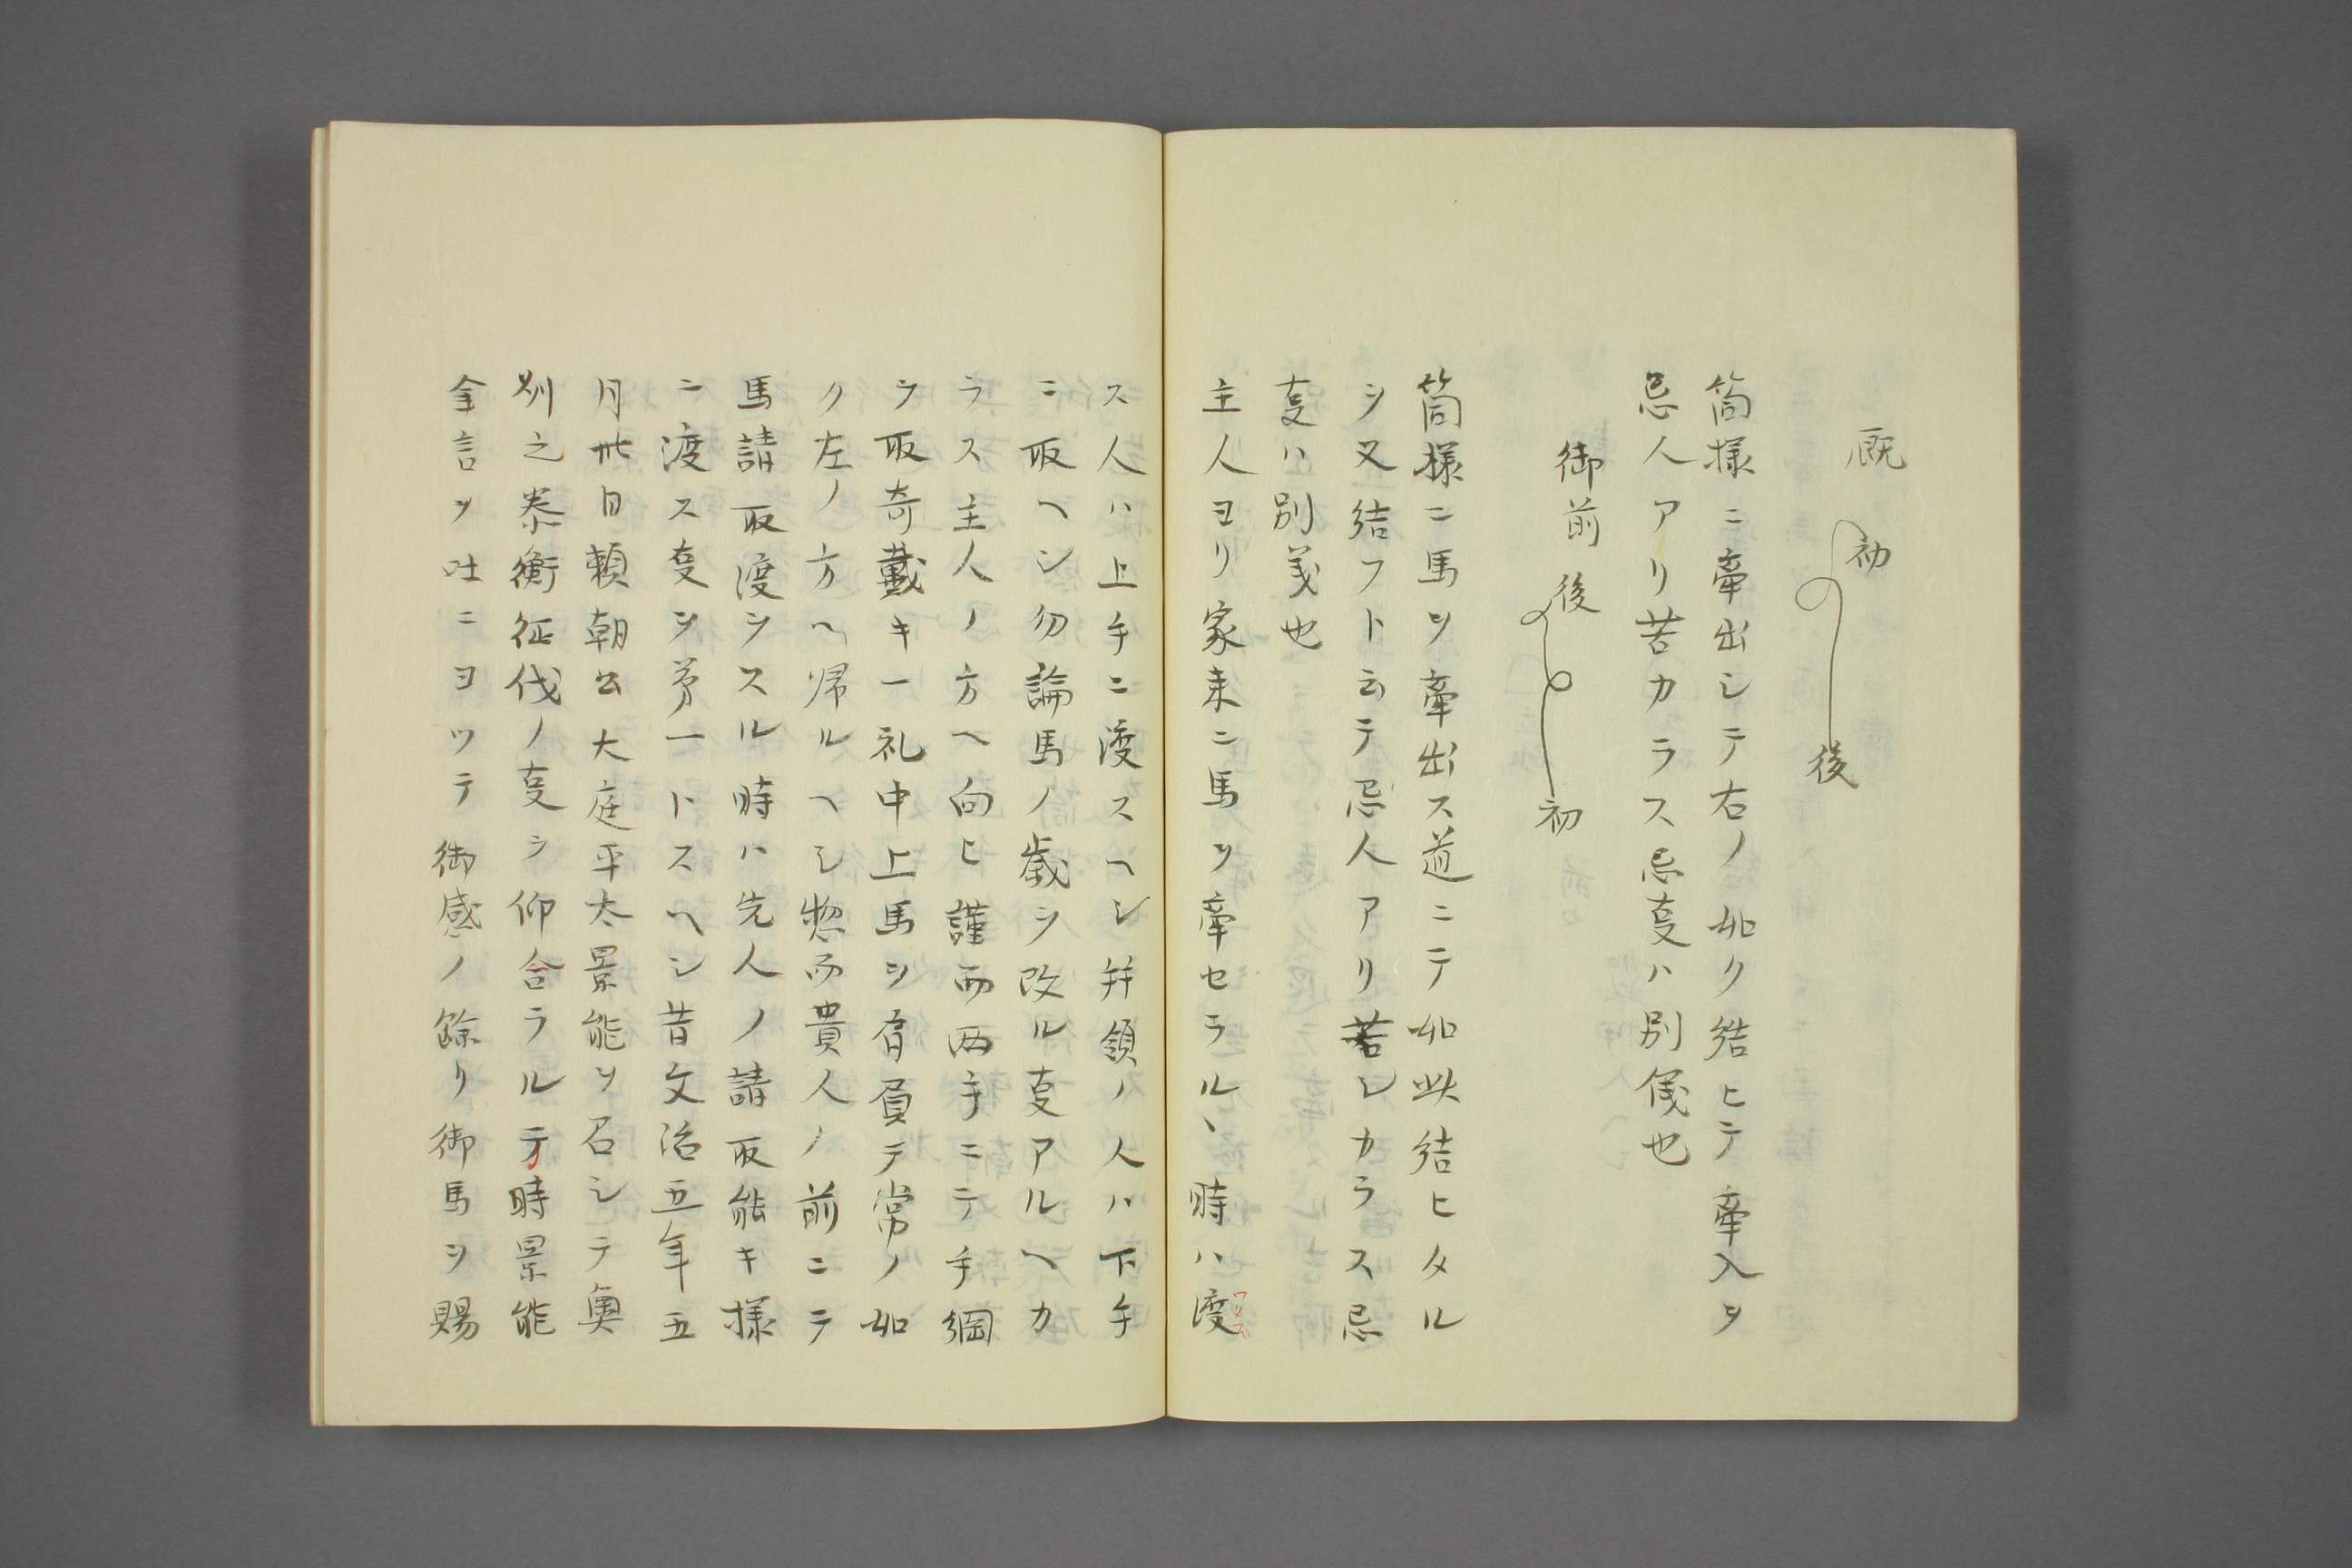 厩
初
後
箇様ニ牽出シテ右ノ如ク結ヒテ牽入ヲ
忌人アリ苦カラス忌㕝ハ別儀也
御前
後
初
箇様ニ馬ヲ牽出ス道ニテ如此結ヒタル
ヲ又結フト云テ忌人アリ若シカラス忌
㕝ハ別義也
主人ヨリ家来ニ馬ヲ牽セラルヽ時ハ渡
ワリス
ス人ハ上手ニ渡スヘシ并領ノ人ハ下手
ニ取ヘシ勿論馬ノ歳ヲ改ル㕝アルヘカ
ラス主人ノ方ヘ向ヒ謹而両手ニテ手綱
ヲ取奇戴キ一礼申上馬ヲ肩負テ常ノ如
ク左ノ方ヘ帰ルヘシ惣而貴人ノ前ニテ
馬請取渡シスル時ハ先人ノ請取能キ様
ニ渡ス㕝ヲ第一トスヘシ昔文治五年五
月卅日頼朝公大庭平太景能ヲ召シテ奥
州之泰衡征伐ノ㕝ヲ仰合ラルヽ時景能
金言ヲ吐ニヨツテ御感ノ餘リ御馬ヲ賜